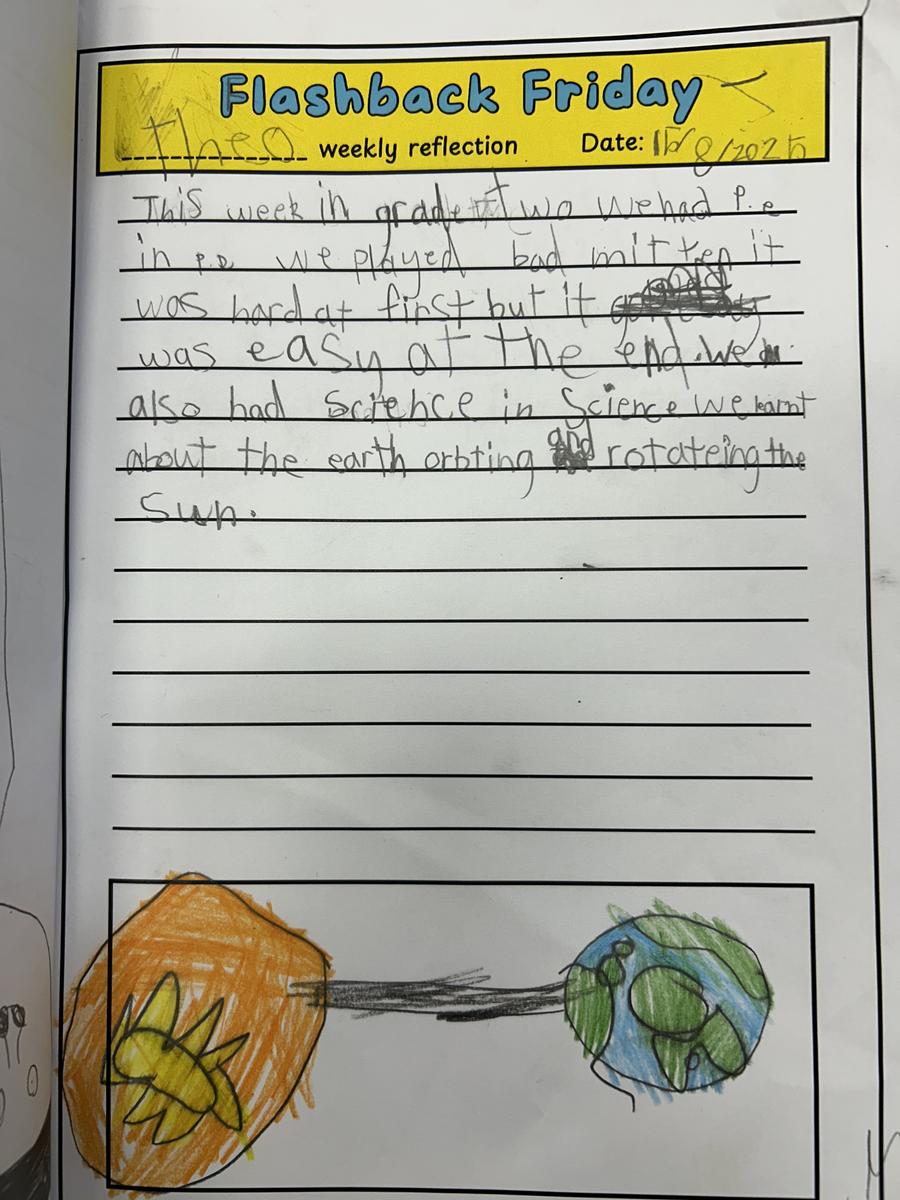 Flashback Friday
Theo weekly reflection Date: 15/8/2025
This week in grade two we had P.e
in p.e we played bad mitten it
was hard at first but it
was easy at the end. We
also had Science in Science we learnt
about the earth orbting and rotateing the
Sun.